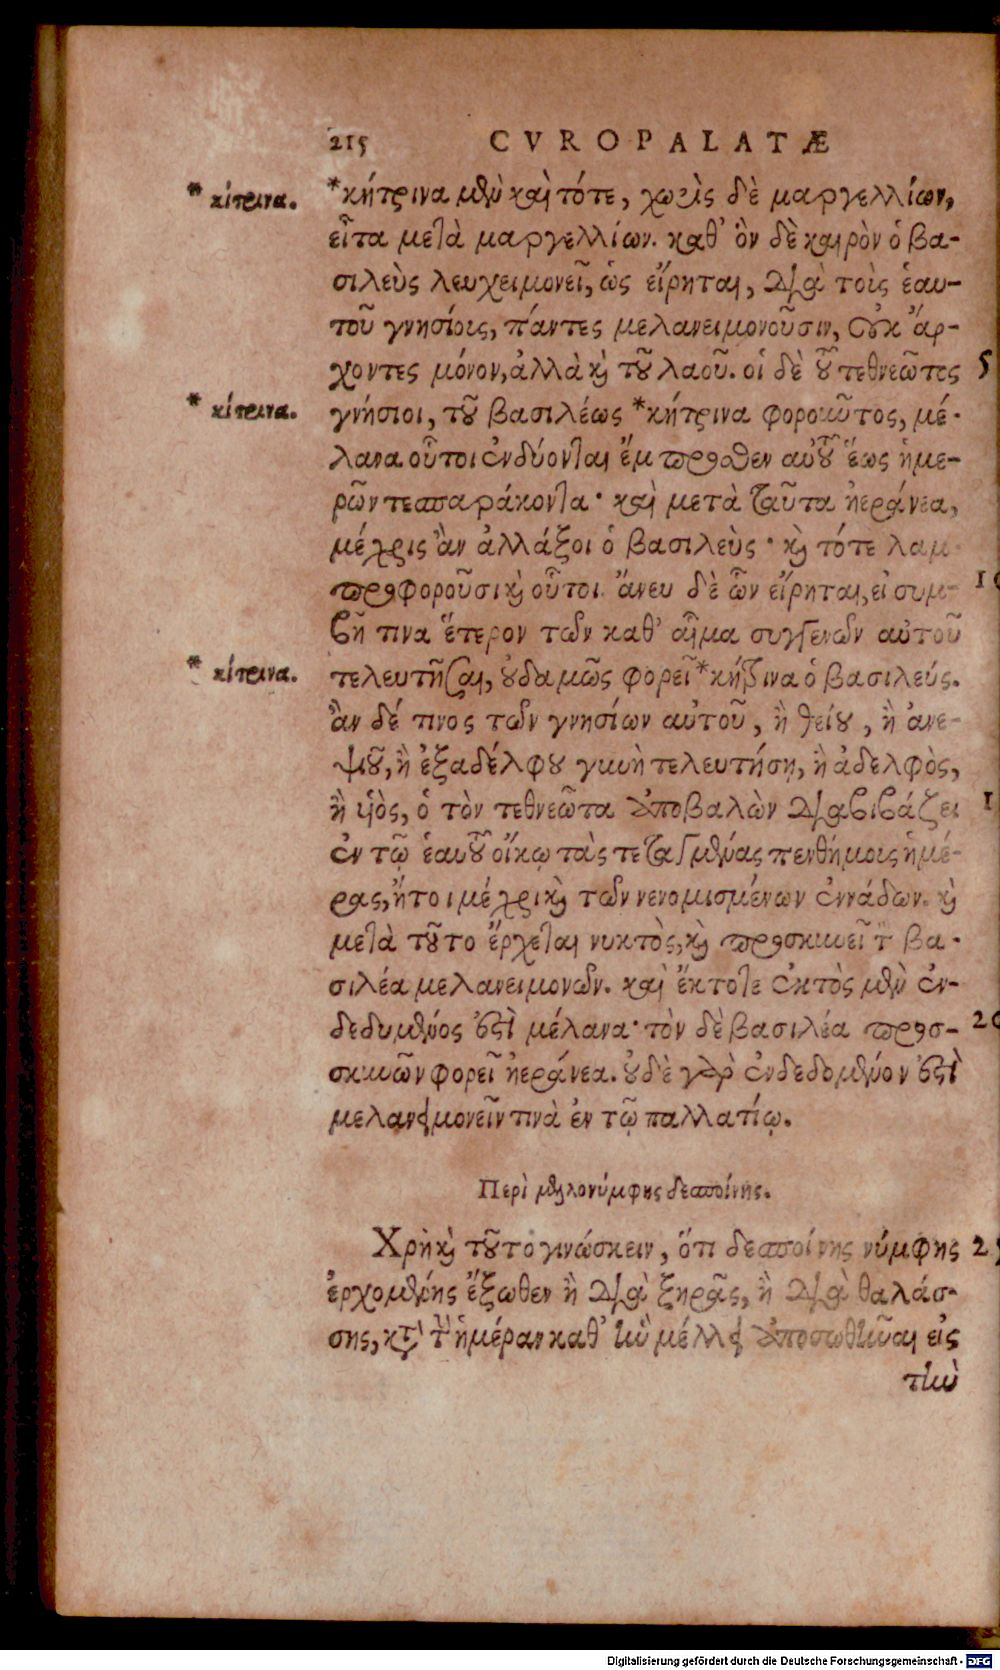 215 CVROPALATÆ
* κίτρινα.
*κήτρινα μὲν καὶ τότε, χωρὶς δὲ μαργελλίων,
εἶτα μετὰ μαργελλίων. καθ' ὃν δὲ καιρὸν ὁ βα-
σιλεὺς λευχειμονεῖ, ὡς εἴρηται, διὰ τοὺς ἑαυ-
τοῦ γνησίους, πάντες μελανειμονοῦσιν, οὐκ ἄρ-
χοντες μόνον, ἀλλὰ καὶ τοῦ λαοῦ. οἱ δὲ τοῦ τεθνεῶτος 5
* κίτρινα.
γνήσιοι, τοῦ βασιλέως *κήτρινα φοροῦντος, μέ-
λανα οὗτοι ἐνδύονται ἔμπροσθεν αὐτοῦ ἕως ἡμε-
ρῶν τεσσαράκοντα· καὶ μετὰ ταῦτα ἠεράνεα,
μέχρις ἂν ἀλλάξοι ὁ βασιλεὺς· καὶ τότε λαμ-
προφοροῦσι καὶ οὗτοι. ἄνευ δὲ ὧν εἴρηται, εἰ συμ- 10
βῇ τινα ἕτερον τῶν καθ' αἷμα συγγενῶν αὐτοῦ
* κίτρινα.
τελευτῆσαι, οὐδαμῶς φορεῖ *κήτρινα ὁ βασιλεύς.
ἂν δέ τινος τῶν γνησίων αὐτοῦ, ἢ θείου, ἢ ἀνε-
ψοῦ, ἢ ἐξαδέλφου γυνὴ τελευτήσῃ, ἢ ἀδελφὸς,
ἢ υἱὸς, ὁ τὸν τεθνεῶτα ἀποβαλὼν διαβιβάζει 1
ἐν τῷ ἑαυτοῦ οἴκῳ τὰς τεταγμένας πενθήμους ἡμέ-
ρας, ἤτοι μέχρι καὶ τῶν νενομισμένων ἐννάδων. καὶ
μετὰ τοῦτο ἔρχεται νυκτὸς, καὶ προσκυνεῖ τὸν βα-
σιλέα μελανειμονῶν. καὶ ἔκτοτε ἐκτὸς μὲν ἐν-
δεδυμένος ἐστὶ μέλανα· τὸν δὲ βασιλέα προσ- 20
σκυνῶν φορεῖ ἠεράνεα. οὐδὲ γὰρ ἐνδεδομένον ἐστὶ
μελανειμονεῖν τινὰ ἐν τῷ παλλατίῳ.
Περὶ μελλονύμφης δεσποίνης.
Χρὴ καὶ τοῦτο γινώσκειν, ὅτι δεσποίνης νύμφης 25
ἐρχομένης ἔξωθεν ἢ διὰ ξηρᾶς, ἢ διὰ θαλάσ-
σης, κατὰ τὴν ἡμέραν καθ' ἣν μέλλει ἀποσωθῆναι εἰς
τὴν
Digitalisierung gefördert durch die Deutsche Forschungsgemeinschaft - DFG